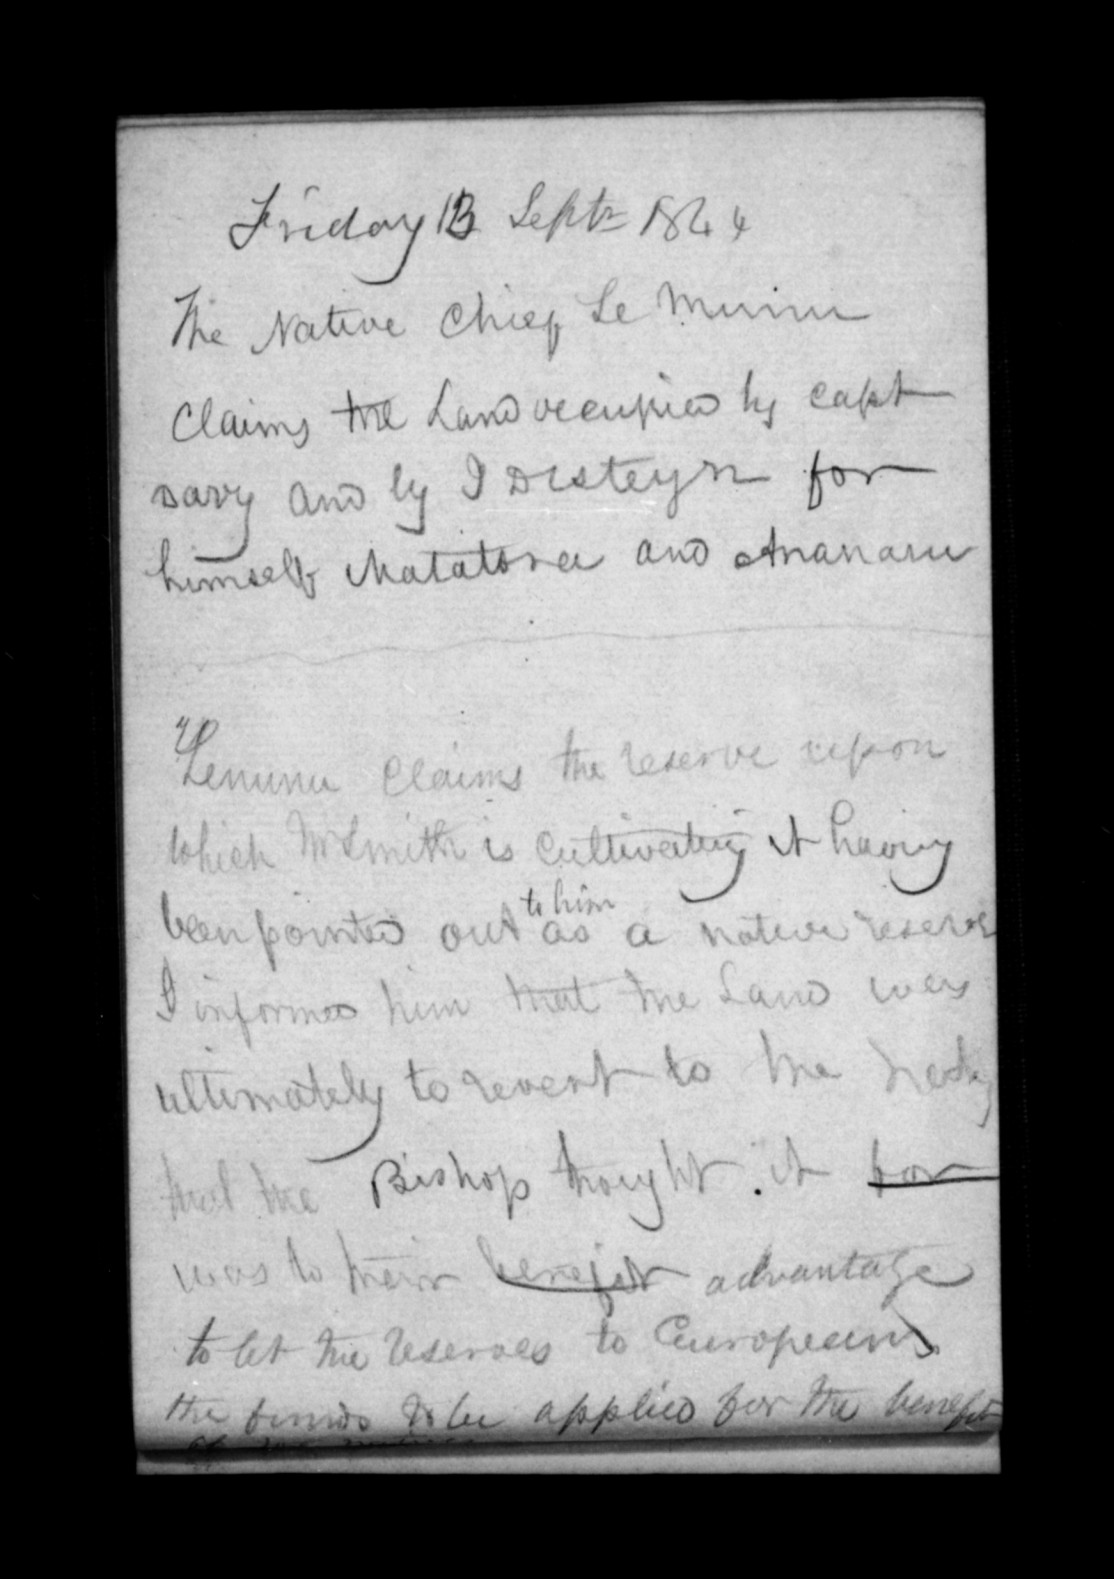 Friday 13 Septr 1844
The Native Chief Le Muinu
Claims the Land occupied by Capt
Davy and by I Disteyn for
himself Matatora and Ananaru
Lenunu Claims the reserve upon
which Mr Smith is cultivating it having
been pointed out to him as a native reserve
I informed him that the Land was
ultimately to revert to the
that the Bishop thought it for
was to their benefit advantage
to let the reserves to Europeans
the funds to be applied for the benefit
of the